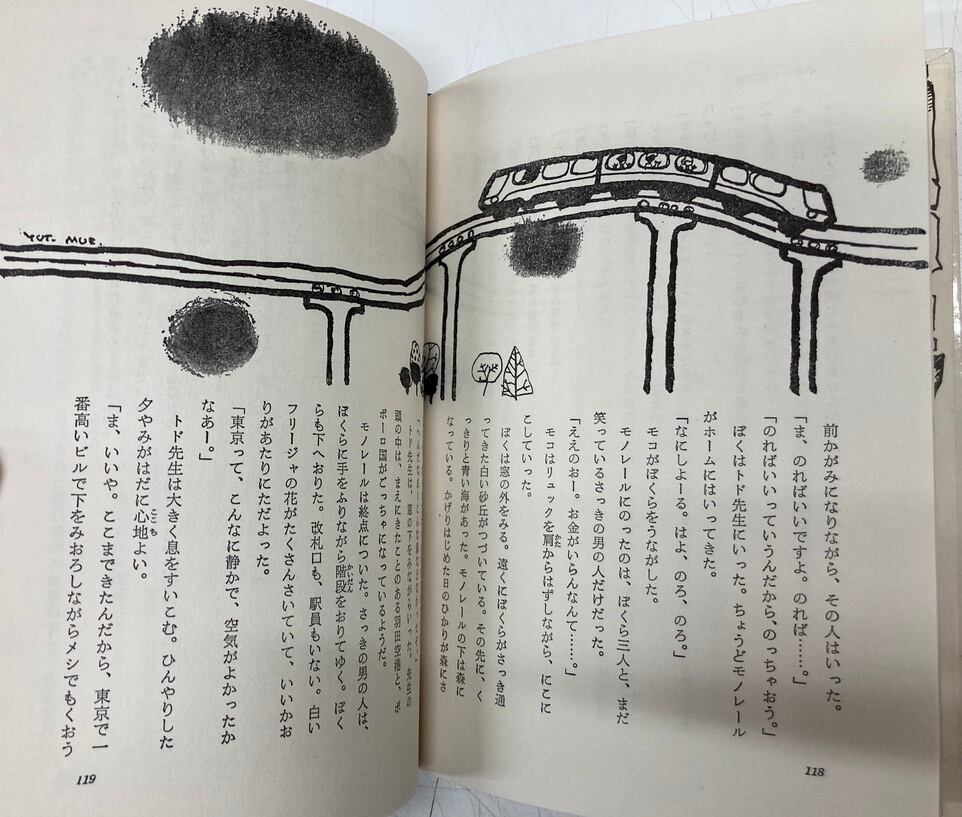 前かがみになりながら、その人はいった。
「ま、のればいいですよ。のれば……。」
「のればいいっていうんだから、のっちゃおう。」
ぼくはトド先生にいった。ちょうどモノレール
がホームにはいってきた。
「なにしよーる。はよ、のろ、のろ。」
モコがぼくらをうながした。
モノレールにのったのは、ぼくら三人と、まだ
笑っているさっきの男の人だけだった。
「ええのおー。お金がいらんなんて……。」
モコはリュックを肩からはずしながら、にこに
こしていった。
ぼくは窓の外をみる。遠くにぼくらがさっき通
ってきた白い砂丘がつづいている。その先に、く
っきりと青い海があった。モノレールの下は森に
なっている。かげりはじめた日のひかりが森にさ
118
YUT. MUR.
トド先生は、窓の下をみながらいった。先生の
頭の中は、まえにきたことのある羽田空港と、ポ
ポーロ国がごっちゃになっているようだ。
モノレールは終点についた。さっきの男の人は、
ぼくらに手をふりながら階段をおりてゆく。ぼく
らも下へおりた。改札口も、駅員もいない。白い
フリージャの花がたくさんさいていて、いいかお
りがあたりにただよった。
「東京って、こんなに静かで、空気がよかったか
なあー。」
トド先生は大きく息をすいこむ。ひんやりした
夕やみがはだに心地よい。
「ま、いいや。ここまできたんだから、東京で一
番高いビルで下をみおろしながらメシでもくおう
119